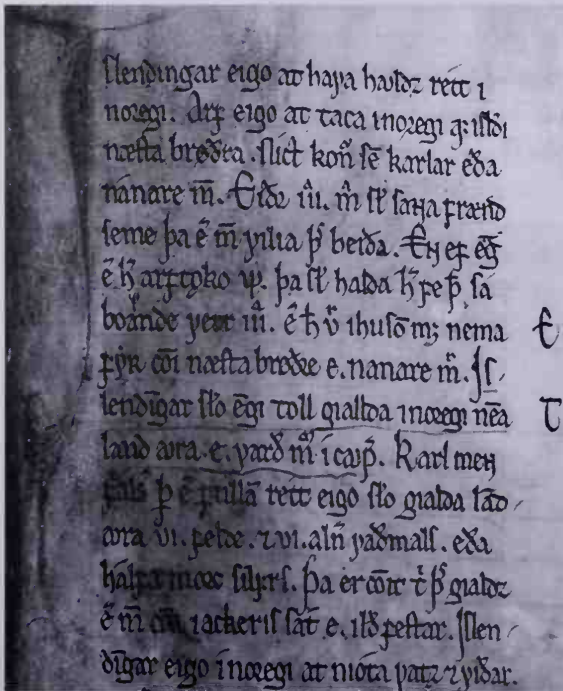 slendingar eigo at hafa haulldz rett i
noregi. Arf eigo at taca inoregi q. islði
næsta brøðra. slict kon̄ sē karlar eða
nánare m̄. Eiðr iii. m̄ sl̄ saɴa frænd
seme þa ē m̄ vilia þ̄ beiða. Eɴ ef ēg
ē h̄ arftøko v̄. þa sl̄ halda h̄ fe þ̄. sa
boande vetr iii. ē h̄ v̄ ihusō mꝫ nema
fyʀ cōi næsta brøðre e. nanare m̄. Is-
lendīgar slo ēgi toll giallda inoregi nēa
land aura. e. varð m̄ i caup̄. Karl meɴ
fals þ̄ ē fullā rett eigo slo gialda lād
aura vi. felde. ⁊ vi. aln̄ vaðmals. eða
hálfa morc silfrs. Þa er cōit t̄ þ̄ gialdz
ē m̄ iackeris sát e. ilð festar. Islen-
dīgar eigo inoregi at niota vatz ⁊ viðar.
E
T